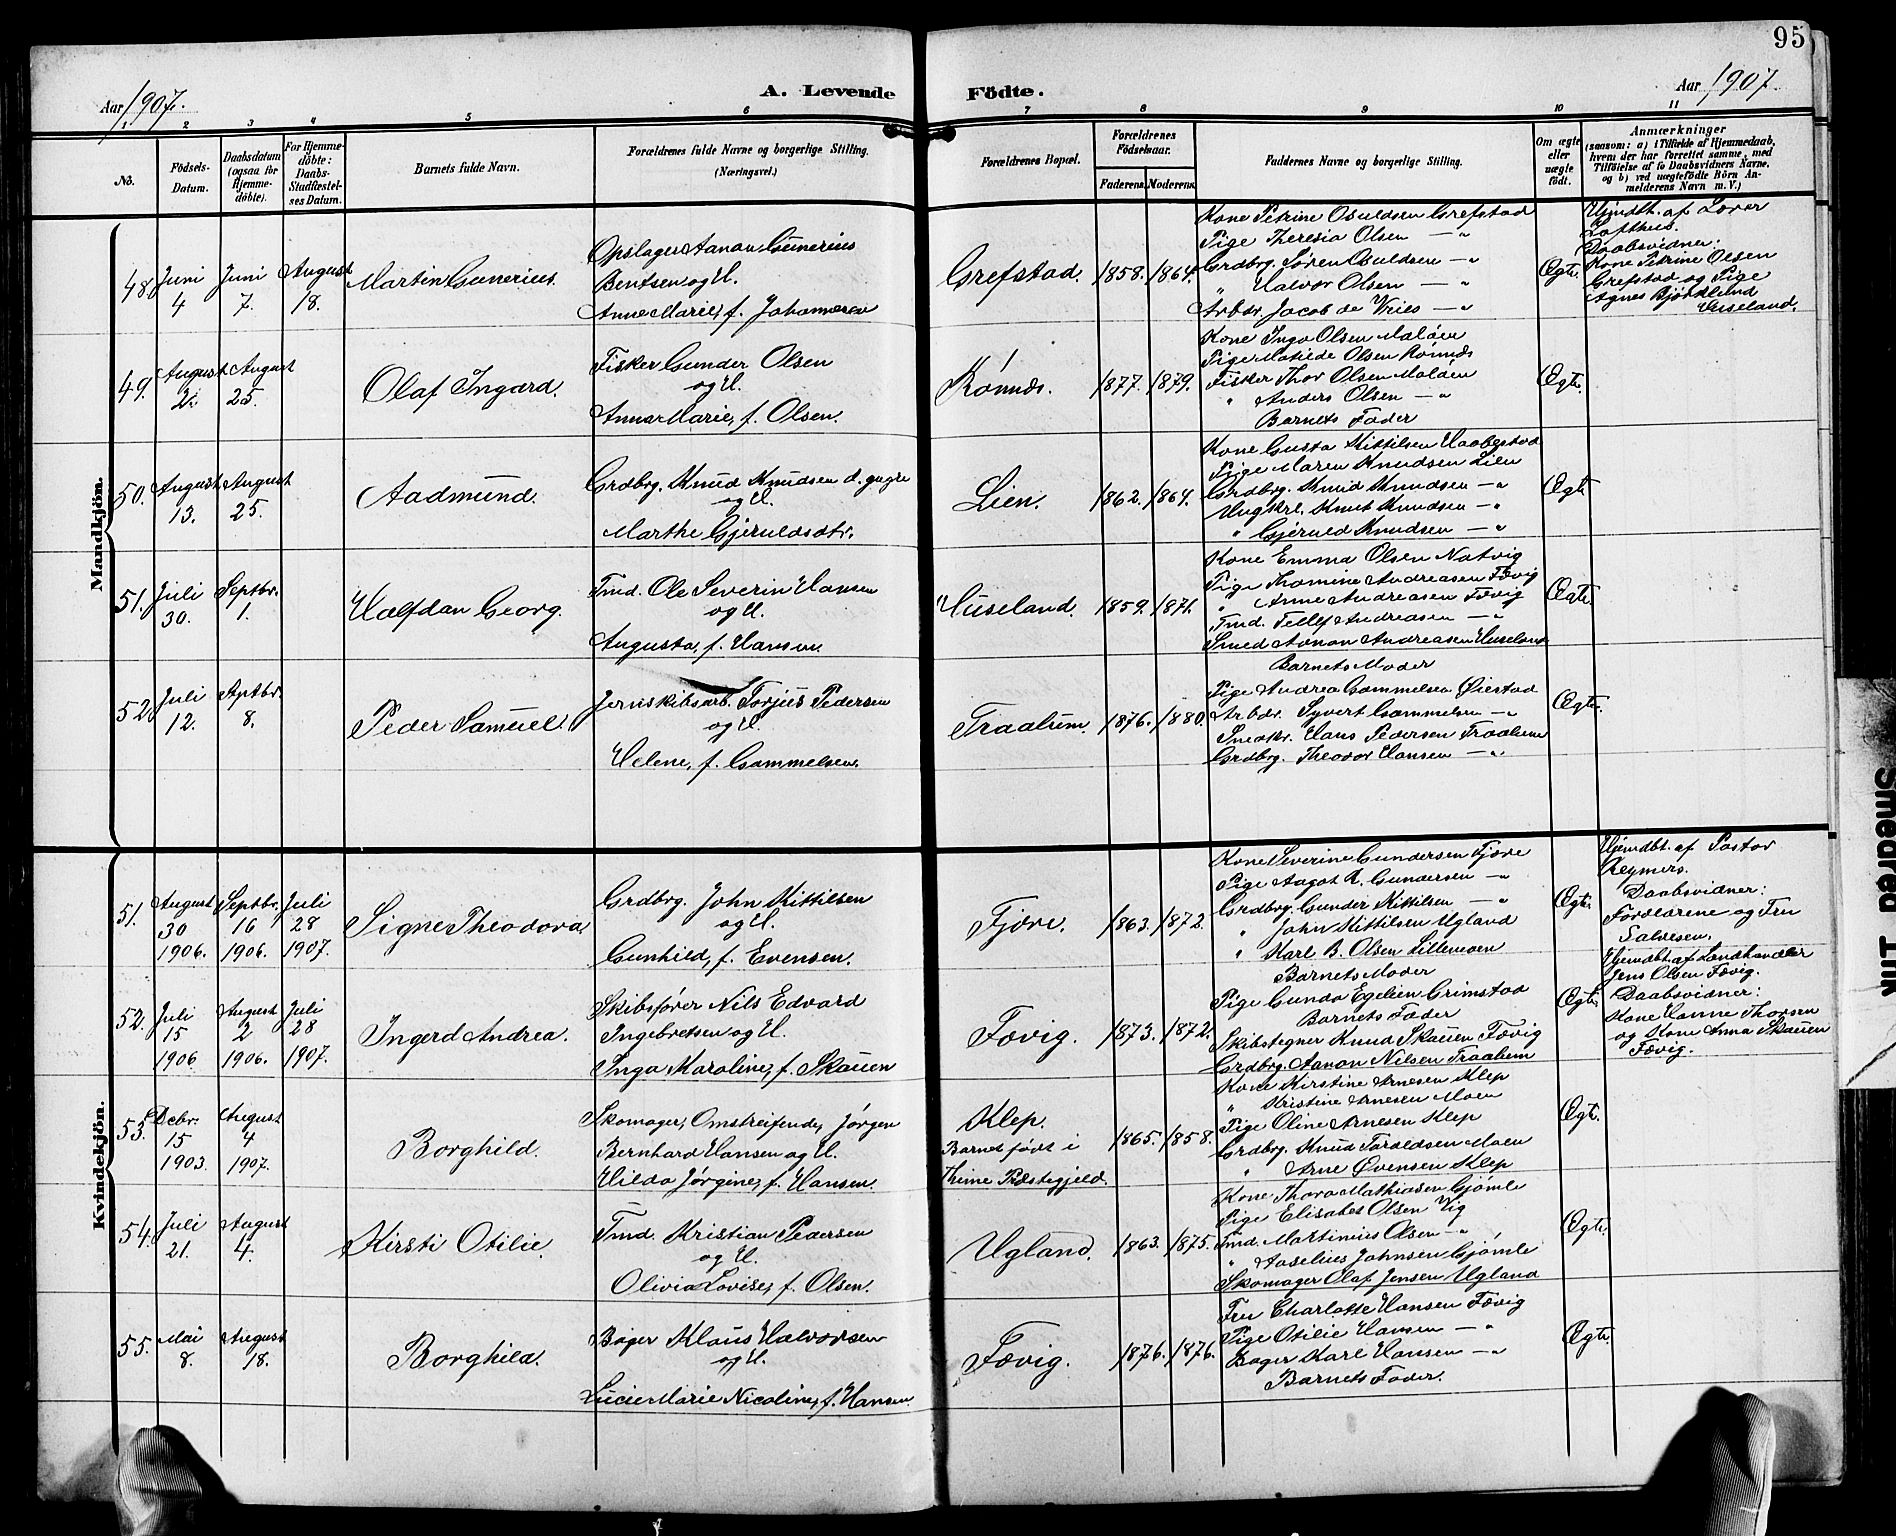 95
Aar 1907. A. Levende Födte. Aar 1907.
1 2 3 4 5 6 7 8 9 10 11
No. Födsels-Datum. Daabsdatum (ogsaa for Hjemme-döbte). For Hjemme-döbte: Daabs-Stadfæstel-ses Datum. Barnets fulde Navn. Forældrenes fulde Navne og borgerlige Stilling. (Næringsvei.) Forældrenes Bopæl. Forældrenes Födselsaar. Faderens. Moderens. Faddernes Navne og borgerlige Stilling. Om ægte eller uægte født. Anmærkninger (saasom: a) i Tilfælde af Hjemmedaab, hvem der har forrettet samme, med Tilföielse af to Daabsvidners Navne, og b) ved uægtefödte Börn An-melderens Navn m. V.)
Mandkjön.
48. Juni 4 Juni 7. August 18. Martin Gunerius.
Opslager Aanon Gunerius
Bentsen og H.
Anne Marie, f. Johannesen
Grefstad. 1858. 1864.
Kone Petrine Osuldsen Grefstad
Pige Theresia Olsen — "
Grdbrg. Søren Osuldsen — "
" Halvor Olsen — "
Arbdr. Jacob de Vries — "
Ægte.
Hjemdbt. af Lærer
Lofthus.
Daabsvidner:
Kone Petrine Olsen
Grefstad og Pige
Agnes Bjørklund
Huseland.
49. August 2. August 25. Olaf Ingard.
Fisker Gunder Olsen
og H.
Anna Marie, f. Olsen.
Rønnes. 1877. 1879.
Kone Inga Olsen Maløen
Pige Matilde Olsen Rønnes
Fisker Thor Olsen Maløen
" Anders Olsen — "
Barnets Fader
Ægte.
50. August 13. August 25. Aadmund.
Grdbrg. Knud Knudsen d. yngre
og H.
Marthe Gjeruldsdtr.
Lien. 1862. 1864.
Kone Gusta Kittilsen Haabestad
Pige Maren Knudsen Lien
Grdbrg. Knud Knudsen — "
Ungkrl. Knut Knudsen — "
" Gjeruld Knudsen — "
Ægte
51. Juli 30. Septbr. 1. Halfdan Georg.
Tmd. Ole Severin Hansen
og H.
Augusta, f. Hansen.
Huseland. 1859. 1871.
Kone Emma Olsen Natvig
Pige Thomine Andreasen Fævig
" Anne Andreasen Fævig
Tmd. Tellef Andreasen — "
Smed Aanon Andreasen Huseland
Barnets Moder
Ægte.
52. Juli 12. Septbr. 8. Peder Samuel.
Jernskibsarb. Torjus Pedersen
og H.
Helene, f. Gammelsen.
Traalum. 1876. 1880.
Pige Andrea Gammelsen Øiestad
Arbdr. Syvert Gammelsen — "
Snedkr. Hans Pedersen Traalum
Grdbrg. Theodor Hansen — "
Ægte.
Kvindekjön.
51. August 30 1906. Septbr. 16 1906. Juli 28 1907. Signe Theodora.
Grdbrg. John Kittilsen
og H.
Gunhild, f. Evensen.
Fjære. 1863. 1872.
Kone Severine Gundersen Fjære
Pige Aagot K. Gundersen — "
Grdbrg. Gunder Kittilsen — "
" John Kittilsen Ugland
" Karl B. Olsen Lillemoen
Barnets Moder
Ægte.
Hjemdbt. af Pastor
Reymers.
Daabsvidner:
Forældrene og Fru
Salvesen.
52. Juli 15 1906 August 2 1906. Juli 28 1907. Ingerd Andrea.
Skibsfører Nils Edvard
Ingebretsen og H.
Inga Karoline, f. Skauen
Fævig. 1873. 1872.
Pige Gunda Egelien Grimstad
Barnets Fader
Skibstegner Knud Skauen Fævig
Grdbrg. Aanon Nilsen Traalum
Ægte.
Hjemdbt. af Landhandler
Jens Olsen Fævig.
Daabsvidner:
Kone Hanne Thorsen
og Kone Anna Skauen
Fævig.
53. Decbr. 15 1903. August 4 1907. Borghild.
Skomager, Omstreifende, Jørgen
Bernhard Hansen og H.
Hilda Jørgine, f. Hansen.
Klep.
Barnet født i
Thime Præstegjeld.
1865. 1858.
Kone Kirstine Arnesen Klep
" Kristine Arnesen Moen
Pige Oline Arnesen Klep
Grdbrg. Knud Taraldsen Moen
" Arne Øvensen Klep
Ægte.
54. Juli 21. August 4. Kirsti Otilie.
Tmd. Kristian Pedersen
og H.
Olivia Lovise, f. Olsen.
Ugland. 1863. 1875.
Kone Thora Mathiasen Gjømle
Pige Elisabet Olsen Vig
Tmd. Martinius Olsen — "
" Aaselius Johnsen Gjømle
Skomager Olaf Jensen Ugland
Ægte.
55. Mai 8. August 18. Borghild.
Bager Klaus Halvorsen
og H.
Lucie Marie Nicoline, f. Hansen
Fævig. 1876. 1876.
Fru Charlotte Hansen Fævig
Pige Otilie Hansen — "
Bager Karl Hansen — "
Barnets Fader.
Ægte.